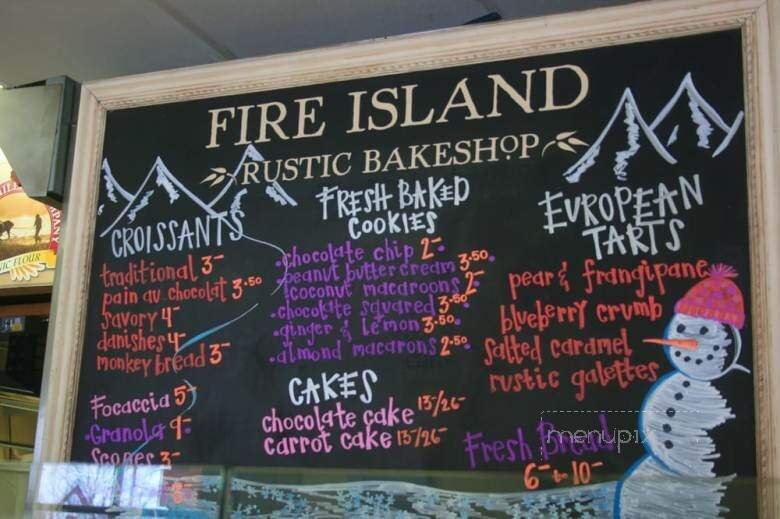 FIRE ISLAND
RUSTIC BAKESHOP
CROISSANTS
traditional 3-
pain au chocolat 3.50
savory 4-
danishes 4-
monkey bread 3-
Focaccia 5-
Granola 9-
Scones 3-
FRESH BAKED
COOKIES
chocolate chip 2-
peanut butter cream 3.50
coconut macaroons 2-
chocolate squared 3.50
ginger & lemon 3.50
almond macarons 2.50
CAKES
chocolate cake 13/26-
carrot cake 13/26-
EUROPEAN
TARTS
pear & frangipane
blueberry crumb
salted caramel
rustic galettes
Fresh Bread
6- to 10-
menupix
IC FLOUR